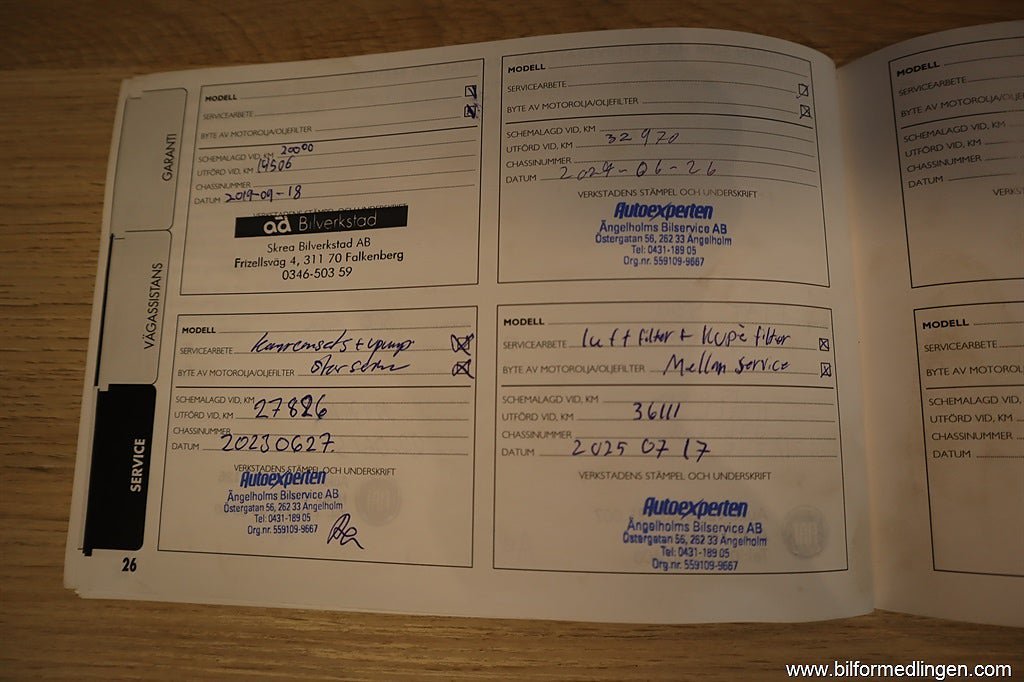 GARANTI
VÄGASSISTANS
SERVICE
26
MODELL
SERVICEARBETE
BYTE AV MOTOROLJA/OLJEFILTER
SCHEMALAGD VID, KM 20000
UTFÖRD VID, KM 14506
CHASSINUMMER
DATUM 2019-09-18
VERKSTADENS STÄMPEL OCH UNDERSKRIFT
ad Bilverkstad
Skrea Bilverkstad AB
Frizellsväg 4, 311 70 Falkenberg
0346-503 59
MODELL
SERVICEARBETE
BYTE AV MOTOROLJA/OLJEFILTER
SCHEMALAGD VID, KM
UTFÖRD VID, KM 32970
CHASSINUMMER
DATUM 2024-06-26
VERKSTADENS STÄMPEL OCH UNDERSKRIFT
Autoexperten
Ängelholms Bilservice AB
Östergatan 56, 262 33 Ängelholm
Tel: 0431-189 05
Org.nr. 559109-9667
MODELL
SERVICEARBETE kamremsats + vpump
BYTE AV MOTOROLJA/OLJEFILTER
SCHEMALAGD VID, KM
UTFÖRD VID, KM 27826
CHASSINUMMER
DATUM 20230627.
VERKSTADENS STÄMPEL OCH UNDERSKRIFT
Autoexperten
Ängelholms Bilservice AB
Östergatan 56, 262 33 Ängelholm
Tel: 0431-189 05
Org.nr. 559109-9667
MODELL
SERVICEARBETE luftfilter + Kupé filter
BYTE AV MOTOROLJA/OLJEFILTER Mellan service
SCHEMALAGD VID, KM
UTFÖRD VID, KM 36111
CHASSINUMMER
DATUM 2025 07 17
VERKSTADENS STÄMPEL OCH UNDERSKRIFT
Autoexperten
Ängelholms Bilservice AB
Östergatan 56, 262 33 Ängelholm
Tel: 0431-189 05
Org.nr. 559109-9667
MODELL
SERVICEARBETE
BYTE AV MOTOROLJA/OLJE
SCHEMALAGD VID, KM
UTFÖRD VID, KM
CHASSINUMMER
DATUM
VERKS
MODELL
SERVICEARBETE
BYTE AV MOTOROLJA/O
SCHEMALAGD VID, KM
UTFÖRD VID, KM
CHASSINUMMER
DATUM
www.bilformedlingen.com